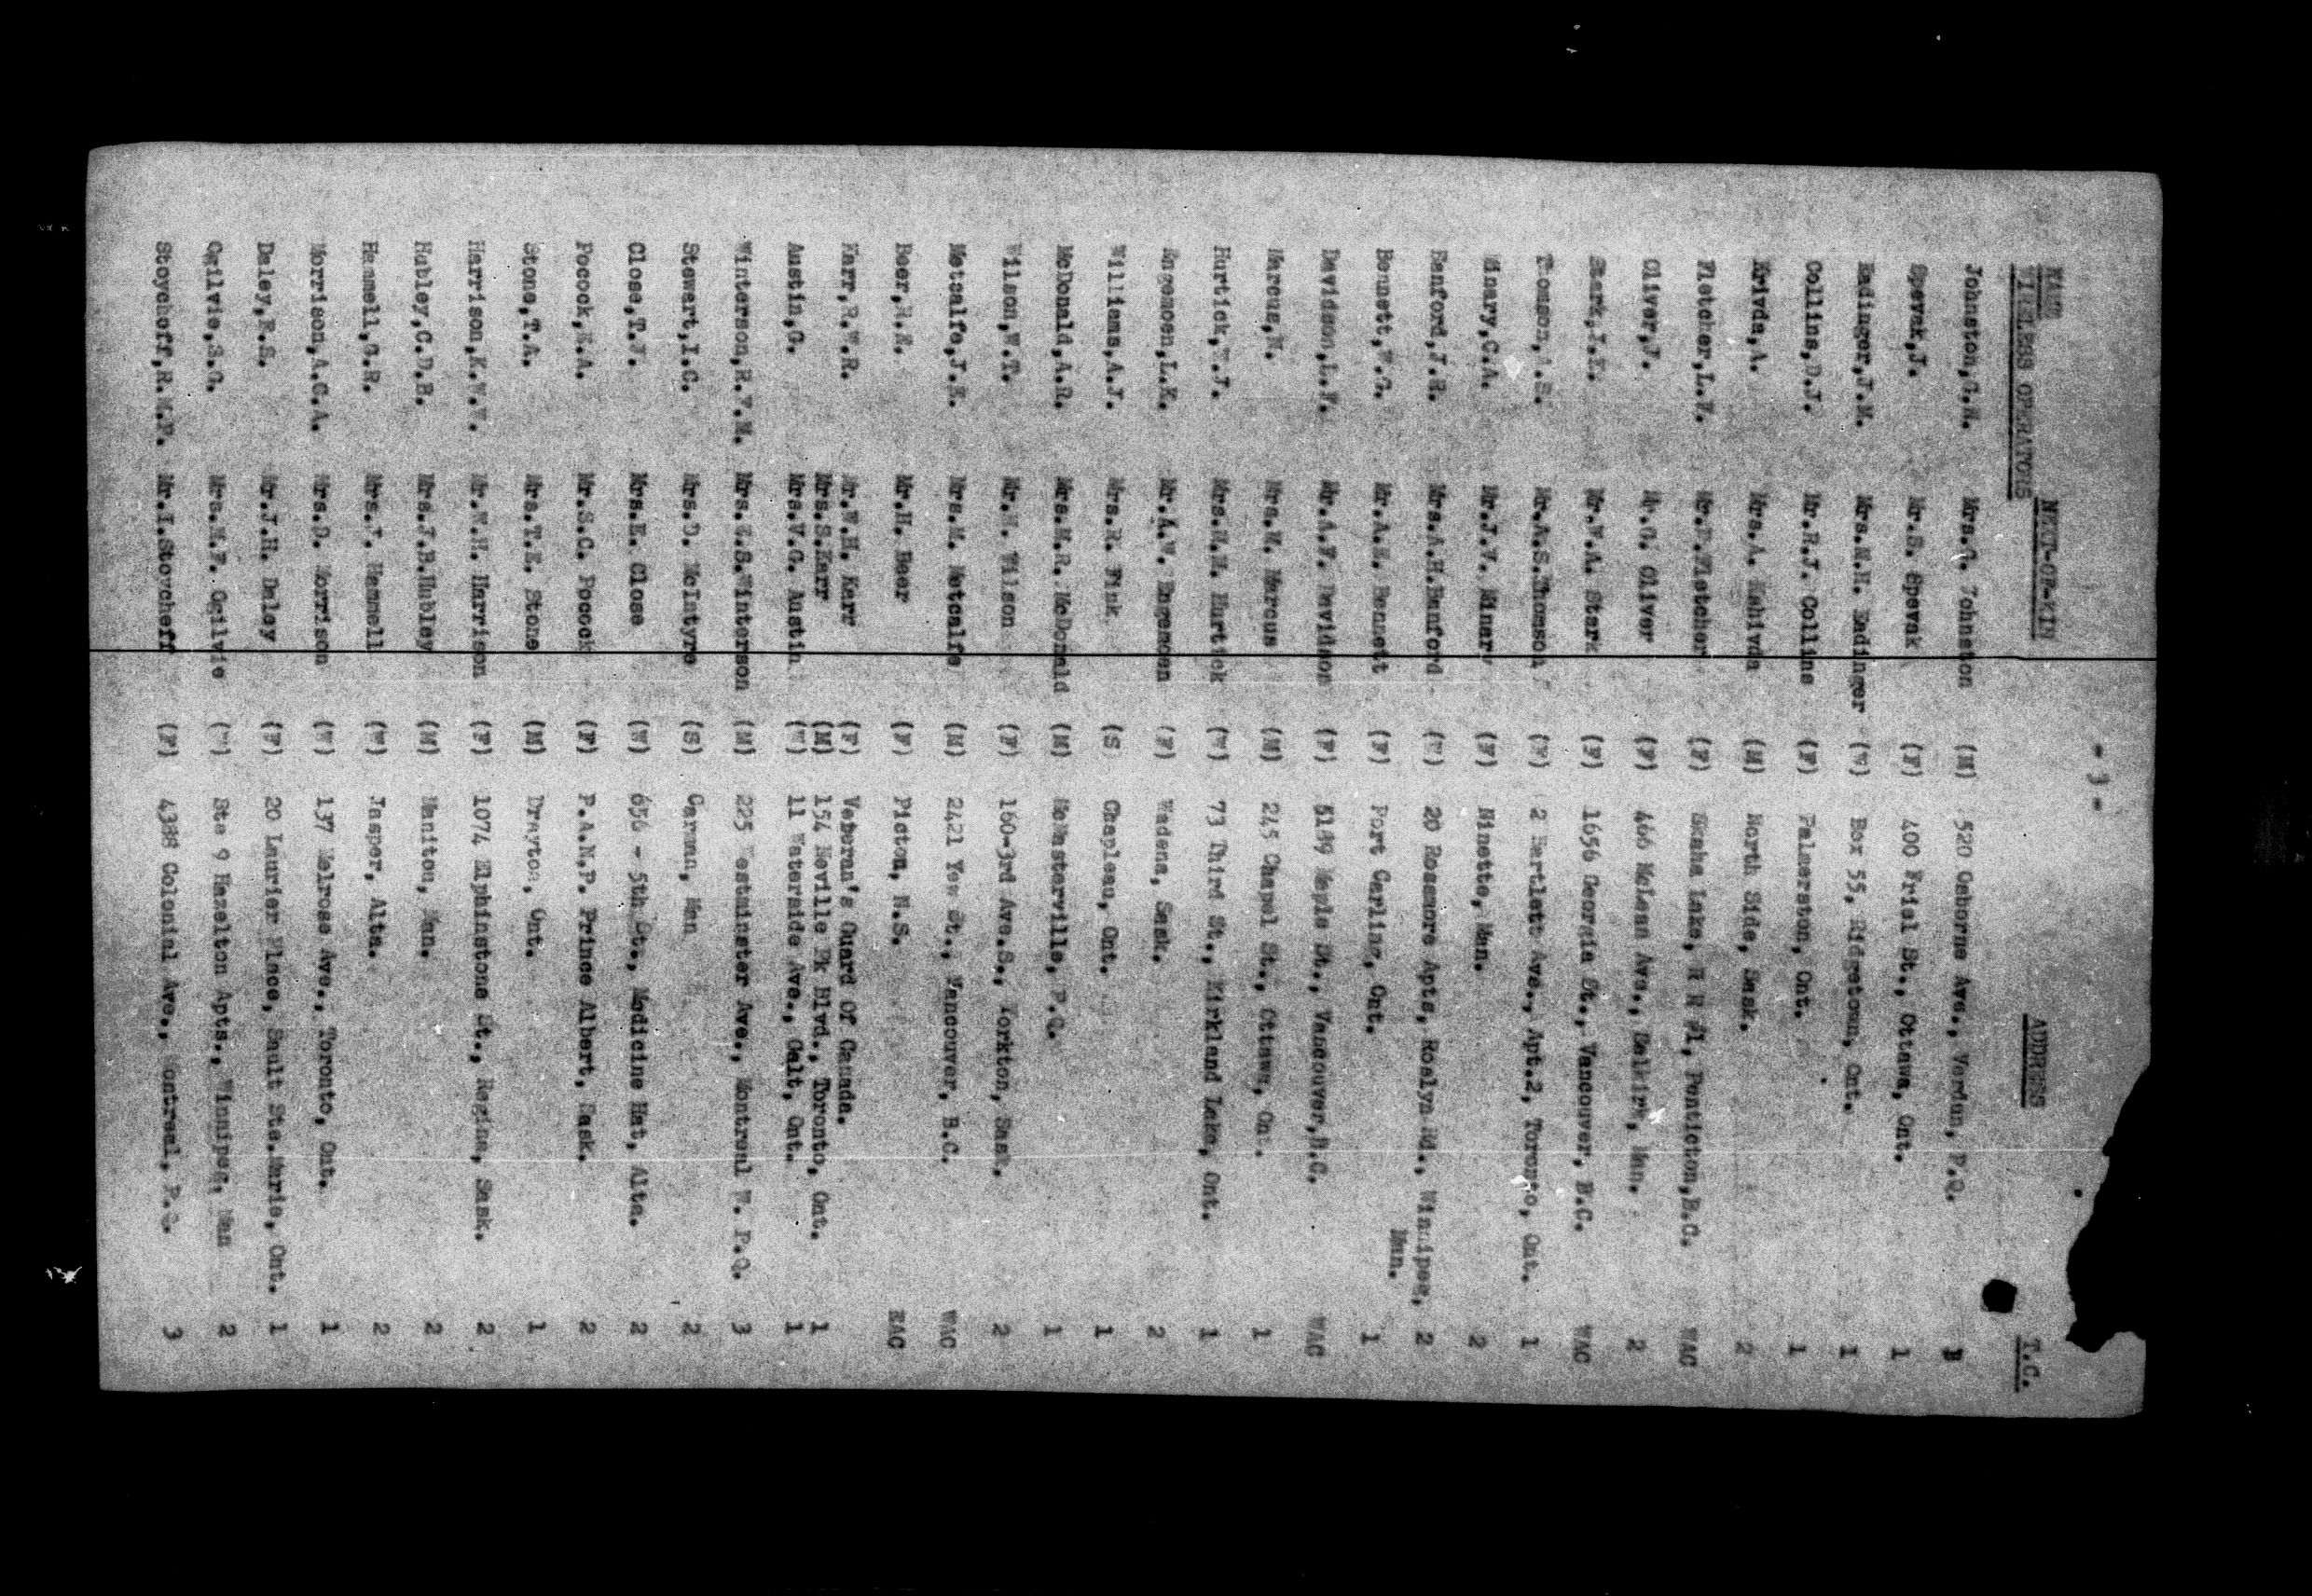 - 3 -
NAME NEXT-OF-KIN ADDRESS T.C.
WIRELESS OPERATORS
Johnston,G.H. Mrs.G. Johnston (M) 520 Osborne Ave., Verdun, P.Q.
Spevak,J. Mr.S. Spevak (F) 400 Friel St., Ottawa, Ont. 1
Eadinger,J.M. Mrs.M.H. Eadinger (W) Box 55, Ridgetown, Ont. 1
Collins,D.J. Mr.R.J. Collins (F) Palmerston, Ont. 1
Krivda,A. Mrs.A. Kohivda (M) North Side, Sask. 2
Fletcher,L.V. Mr.P.Fletcher (F) Skaha Lake, R R #1, Penticton,B.C. WAC
Oliver,J. Mr.G. Oliver (F) 466 McLean Ave., Selkirk, Man. 2
Stark,J.K. Mr.V.A. Stark (F) 1656 Georgia St., Vancouver, B.C. WAC
Thomson, Mr.A.S.Thomson (F) 2 Bartlett Ave., Apt.2, Toronto, Ont. 1
Minary,C.A. Mr.J.V. Minary (F) Ninette, Man. 2
Banford,J.R. Mrs.A.H.Banford (W) 20 Rossmore Apts, Roslyn Rd., Winnipeg, 2
Man.
Bennett,F.G. Mr.A.E. Bennett (F) Port Carling, Ont. 1
Davidson,L.F. Mr.A.F. Davidson (F) 5189 Maple St., Vancouver,B.C. WAC
Marcus,N. Mrs.M. Marcus (M) 245 Chapel St., Ottawa, Ont. 1
Hurtick,W.J. Mrs.H.M. Hurtick (W) 73 Third St., Kirkland Lake, Ont. 1
Engemoen,L.K. Mr.A.V. Engemoen (F) Wadena, Sask. 2
Williams,A.J. Mrs.R. Fink (S Chapleau, Ont. 1
McDonald,A.R. Mrs.M.R. McDonald (M) McMasterville, P.Q. 1
Wilson,W.T. Mr.H. Wilson (F) 160-3rd Ave.S., Yorkton, Sask. 2
Metcalfe,J.E. Mrs.M. Metcalfe (M) 2421 Yew St., Vancouver, B.C. WAC
Beer,H.R. Mr.H. Beer (F) Pictou, N.S. EAC
Kerr,R.W.R. Mr.W.H. Kerr (F) Veteran's Guard Of Canada.
Mrs.S.Kerr (M) 154 Neville Pk Blvd., Toronto, Ont. 1
Austin,G. Mrs.V.G. Austin (W) 11 Waterside Ave., Galt, Ont. 1
Winterson,R.V.M. Mrs.E.S.Winterson (M) 225 Westminster Ave., Montreal W. P.Q. 3
Stewart,I.C. Mrs.D. McIntyre (S) Carman, Man 2
Close,T.J. Mrs.E. Close (W) 656 - 5th St., Medicine Hat, Alta. 2
Pocock,E.A. Mr.S.C. Pocock (F) P.A.N.P. Prince Albert, Sask. 2
Stone,T.A. Mrs.T.E. Stone (M) Drayton, Ont. 1
Harrison,K.W.W. Mr.W.H. Harrison (F) 1074 Elphinstone St., Regina, Sask. 2
Hubley,C.D.B. Mrs.J.B.Hubley (M) Manitou, Man. 2
Hammell,G.R. Mrs.V. Hammell (W) Jasper, Alta. 2
Morrison,A.C.A. Mrs.D. Morrison (W) 137 Melrose Ave., Toronto, Ont. 1
Daley,E.S. Mr.J.H. Daley (F) 20 Laurier Place, Sault Ste.Marie, Ont. 1
Ogilvie,S.G. Mrs.M.F. Ogilvie (W) Ste 9 Hazelton Apts., Winnipeg, Man 2
Stoycheff,R.W.P. Mr.I.Stoycheff (F) 4388 Colonial Ave., Montreal, P.Q. 3